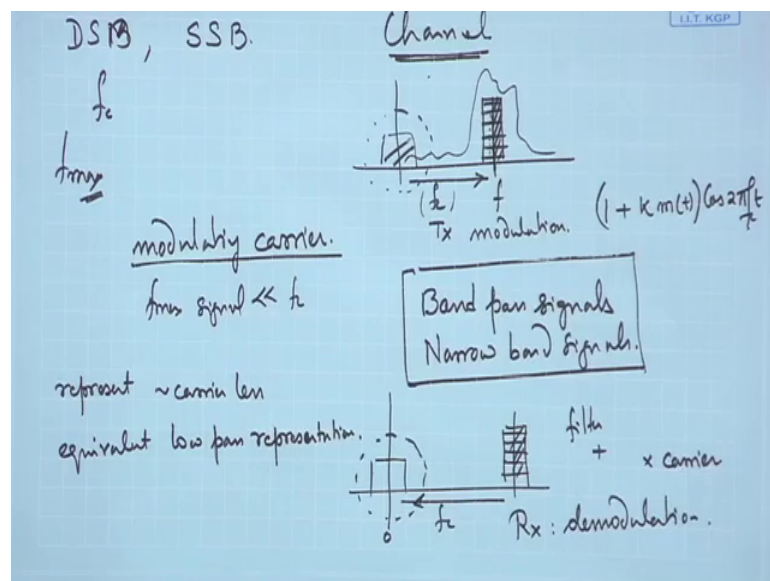 I.I.T. KGP
DSB, SSB.
Channel
fc
fmax
(fc) f
Tx modulation.
(1 + K m(t)) Cos 2πfct
modulating carrier.
fmax signal << fc
Band pass signals
Narrow band signals.
represent ~carrier less
equivalent low pass representation.
filter
+ x carrier
fc
0
Rx : demodulation.